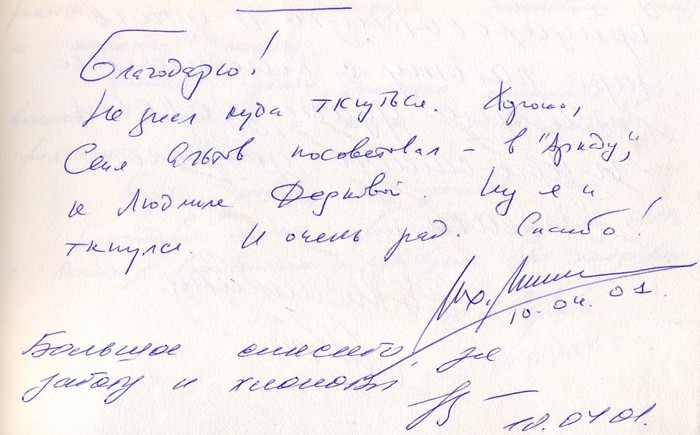 Благодарю!
Не знал куда ткнуться. Хорошо,
Сеня Альтов посоветовал – в "Аркаду",
к Людмиле Федковой. Ну я и
ткнулся. И очень рад. Спасибо!
10.04.01.
Большое спасибо, за
заботу и хлопоты
10.04.01.